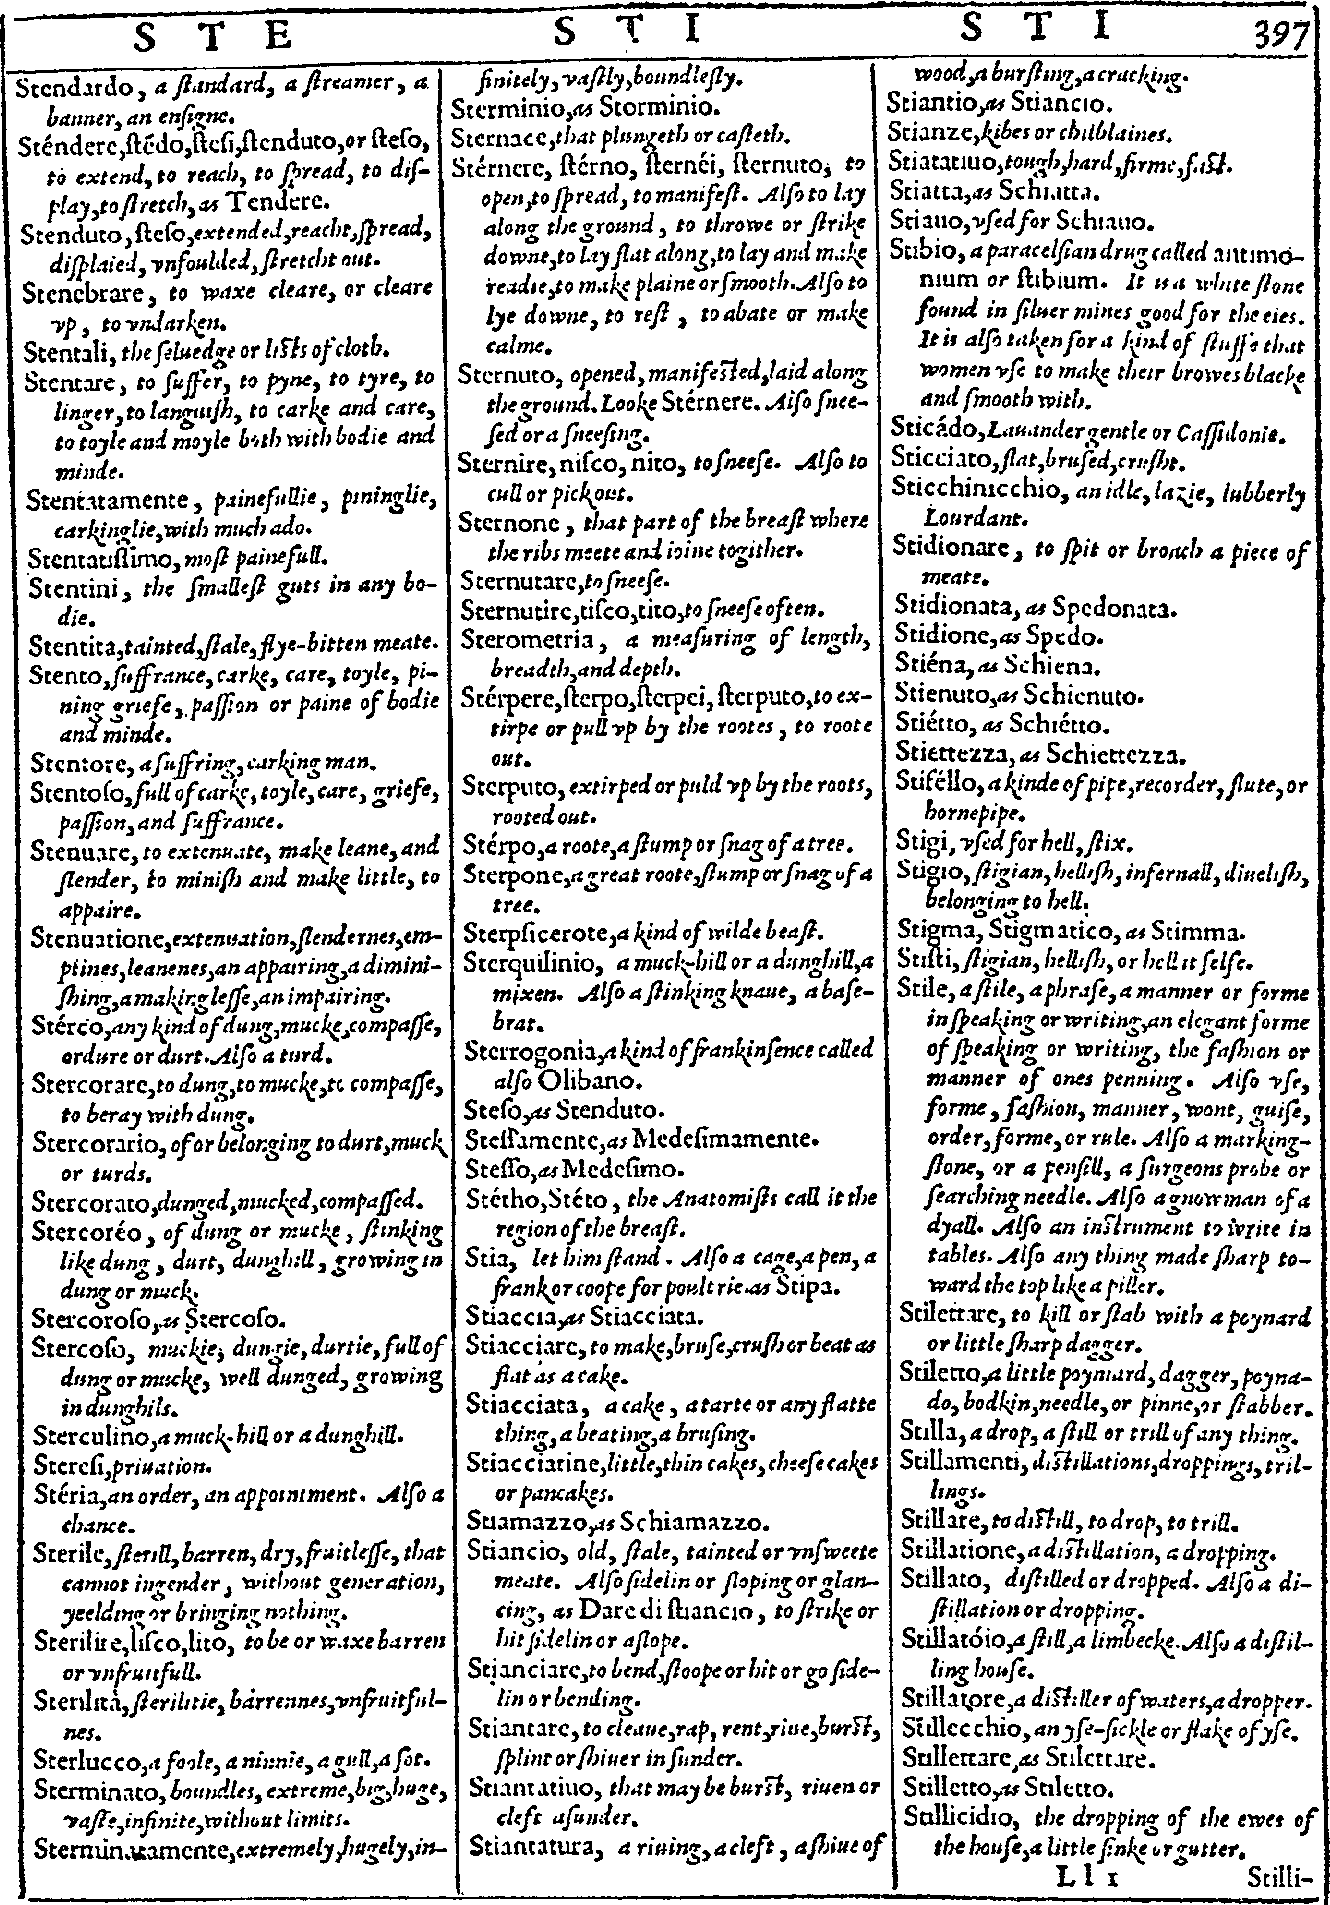 S T E
S T I
S T I
397
Stendardo, a ſtandard, a ſtreamer, a
banner, an enſigne.
Sténdere, ſtẽdo, ſteſi, ſtenduto, or ſteſo,
to extend, to reach, to ſpread, to diſ-
play, to ſtretch, as Tendere.
Stenduto, ſteſo, extended, reacht, ſpread,
diſplaied, vnfoulded, ſtretcht out.
Stenebrare, to waxe cleare, or cleare
vp, to vndarken.
Stentali, the ſeluedge or liſts of cloth.
Stentare, to ſuffer, to pyne, to tyre, to
linger, to languiſh, to carke and care,
to toyle and moyle both with bodie and
minde.
Stentatamente, painefullie, pininglie,
carkinglie, with much ado.
Stentatiſſimo, moſt painefull.
Stentini, the ſmalleſt guts in any bo-
die.
Stentita, tainted, ſtale, flye-bitten meate.
Stento, ſuffrance, carke, care, toyle, pi-
ning griefe, paſſion or paine of bodie
and minde.
Stentore, a ſuffring, carking man.
Stentoſo, full of carke, toyle, care, griefe,
paſſion, and ſuffrance.
Stenuare, to extenuate, make leane, and
ſlender, to miniſh and make little, to
appaire.
Stenuatione, extenuation, ſlendernes, em-
ptines, leanenes, an appairing, a dimini-
ſhing, a making leſſe, an impairing.
Stérco, any kind of dung, mucke, compaſſe,
ordure or durt. Alſo a turd.
Stercorare, to dung, to mucke, to compaſſe,
to beray with dung.
Stercorario, of or belonging to durt, muck
or turds.
Stercorato, dunged, mucked, compaſſed.
Stercoréo, of dung or mucke, ſtinking
like dung, durt, dunghill, growing in
dung or muck.
Stercoroſo, as Stercoſo.
Stercoſo, muckie, dungie, durtie, full of
dung or mucke, well dunged, growing
in dunghils.
Sterculino, a muck-hill or a dunghill.
Stereſi, priuation.
Stéria, an order, an appointment. Alſo a
chance.
Sterile, ſterill, barren, dry, fruitleſſe, that
cannot ingender, without generation,
yeelding or bringing nothing.
Sterilire, liſco, lito, to be or waxe barren
or vnfruitfull.
Sterilità, ſterilitie, barrennes, vnfruitful-
nes.
Sterlucco, a foole, a ninnie, a gull, a ſot.
Sterminato, boundles, extreme, big, huge,
vaſte, infinite, without limits.
Sterminatamente, extremely, hugely, in-
finitely, vaſtly, boundleſly.
Sterminio, as Storminio.
Sternace, that plungeth or caſteth.
Stérnere, ſtérno, ſternéi, ſternuto, to
open, to ſpread, to manifeſt. Alſo to lay
along the ground, to throwe or ſtrike
downe, to lay flat along, to lay and make
readie, to make plaine or ſmooth. Alſo to
lye downe, to reſt, to abate or make
calme.
Sternuto, opened, manifeſted, laid along
the ground. Looke Stérnere. Alſo ſnee-
ſed or a ſneeſing.
Sternire, niſco, nito, to ſneeſe. Alſo to
cull or pick out.
Sternone, that part of the breaſt where
the ribs meete and ioine togither.
Sternutare, to ſneeſe.
Sternutire, tiſco, tito, to ſneeſe often.
Sterometria, a meaſuring of length,
breadth, and depth.
Stérpere, ſterpo, ſterpei, ſterputo, to ex-
tirpe or pull vp by the rootes, to roote
out.
Sterputo, extirped or puld vp by the roots,
rooted out.
Stérpo, a roote, a ſtump or ſnag of a tree.
Sterpone, a great roote, ſtump or ſnag of a
tree.
Sterpſicerote, a kind of wilde beaſt.
Sterquilinio, a muck-hill or a dunghill, a
mixen. Alſo a ſtinking knaue, a baſe-
brat.
Sterrogonia, a kind of frankinſence called
alſo Olibano.
Steſo, as Stenduto.
Steſſamente, as Medeſimamente.
Steſſo, as Medeſimo.
Stétho, Stéto, the Anatomiſts call it the
region of the breaſt.
Stia, let him ſtand. Alſo a cage, a pen, a
frank or coope for poultrie. as Stipa.
Stiaccia, as Stiacciata.
Stiacciare, to make, bruſe, cruſh or beat as
flat as a cake.
Stiacciata, a cake, a tarte or any flatte
thing, a beating, a bruſing.
Stiacciatine, little, thin cakes, cheeſe cakes
or pancakes.
Stiamazzo, as Schiamazzo.
Stiancio, old, ſtale, tainted or vnſweete
meate. Alſo ſidelin or ſloping or glan-
cing, as Dare di ſtiancio, to ſtrike or
hit ſidelin or aſlope.
Stianciare, to bend, ſtoope or hit or go ſide-
lin or bending.
Stiantare, to cleaue, rap, rent, riue, burſt,
ſplint or ſhiuer in ſunder.
Stiantatiuo, that may be burſt, riuen or
cleft aſunder.
Stiantatura, a riuing, a cleft, a ſhiue of
wood, a burſting, a cracking.
Stiantio, as Stiancio.
Stianze, kibes or chilblaines.
Stiatatiuo, tough, hard, firme, faſt.
Stiatta, as Schiatta.
Stiauo, vſed for Schiauo.
Stibio, a paracelſian drug called antimo-
nium or ſtibium. It is a white ſtone
found in ſiluer mines good for the eies.
It is alſo taken for a kind of ſtuffe that
women vſe to make their browes blacke
and ſmooth with.
Sticádo, Lauander gentle or Caſſidonie.
Sticciato, flat, bruſed, cruſht.
Sticchinicchio, an idle, lazie, lubberly
Lourdant.
Stidionare, to ſpit or broach a piece of
meate.
Stidionata, as Spedonata.
Stidione, as Spedo.
Stiéna, as Schiena.
Stienuto, as Schienuto.
Stiétto, as Schiétto.
Stiettezza, as Schiettezza.
Stiféllo, a kinde of pipe, recorder, flute, or
hornepipe.
Stigi, vſed for hell, ſtix.
Stigio, ſtigian, helliſh, infernall, diueliſh,
belonging to hell.
Stigma, Stigmatico, as Stimma.
Stiſti, ſtigian, helliſh, or hell it ſelfe.
Stile, a ſtile, a phraſe, a manner or forme
in ſpeaking or writing, an elegant forme
of ſpeaking or writing, the faſhion or
manner of ones penning. Alſo vſe,
forme, faſhion, manner, wont, guiſe,
order, forme, or rule. Alſo a marking-
ſtone, or a penſill, a ſurgeons probe or
ſearching needle. Alſo a gnowman of a
dyall. Alſo an inſtrument to write in
tables. Alſo any thing made ſharp to-
ward the top like a piller.
Stilettare, to kill or ſtab with a poynard
or little ſharp dagger.
Stiletto, a little poyniard, dagger, poyna-
do, bodkin, needle, or pinne, or ſtabber.
Stilla, a drop, a ſtill or trill of any thing.
Stillamenti, diſtillations, droppings, tril-
lings.
Stillare, to diſtill, to drop, to trill.
Stillatione, a diſtillation, a dropping.
Stillato, diſtilled or dropped. Alſo a di-
ſtillation or dropping.
Stillatóio, a ſtill, a limbecke. Alſo a diſtil-
ling houſe.
Stillatore, a diſtiller of waters, a dropper.
Stillecchio, an yſe-ſickle or flake of yſe.
Stillettare, as Stilettare.
Stilletto, as Stiletto.
Stillicidio, the dropping of the ewes of
the houſe, a little ſinke or gutter.
L l 1
Stilli-